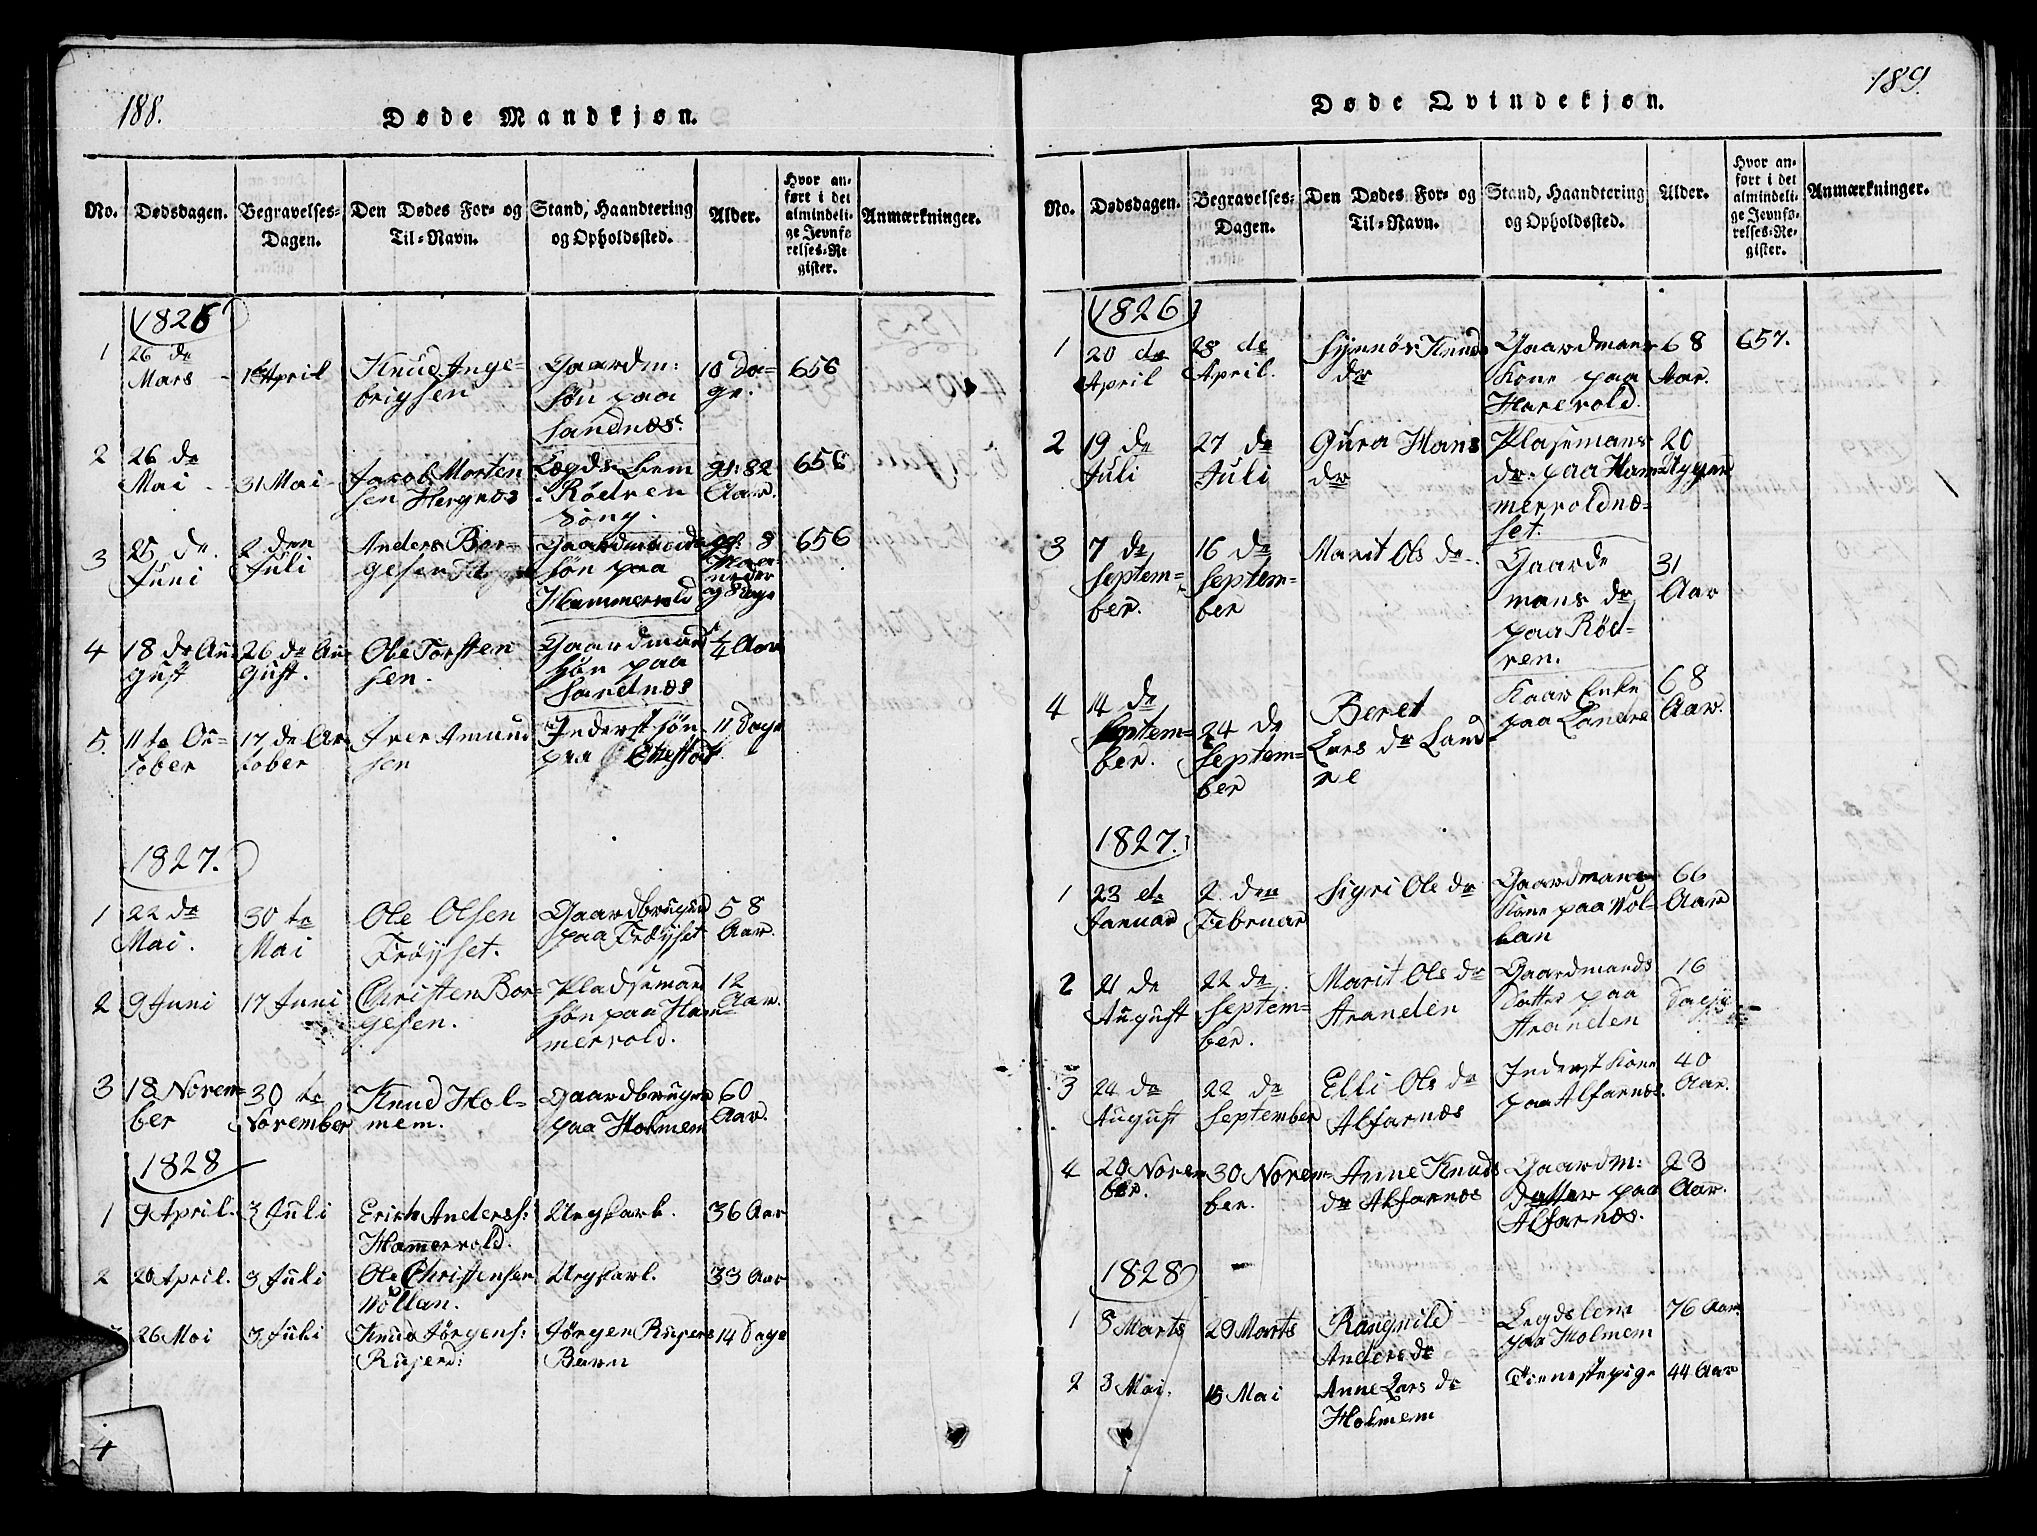 188.
Døde Mandkjøn.
No. Dødsdagen. Begravelses-Dagen. Den Dødes For- og Til-Navn. Stand, Haandtering og Opholdssted. Alder. Hvor anført i det almindelige Jevnførelses-Register. Anmærkninger.
1826
1 26 de Mars - 1 April Knud Ingebrigsen Gaardm: søn paa Sandnæs. 10 Dage. 656
2 26 de Mai - 31 Mai - Jacob Mortensen Hegnæs Lægds-Lem Rödven 82 Aar. 656
3 25 de Juni 2 den Juli Anders Borgesen søn paa Hammervold 8 Maaneder og 8 Dage 656
4 18 de August 26 de August. Ole Torstensen. Gaardmands søn paa Sandnæs 1/4 Aar
5. 11 te October 17 de October Iver Amundsen Inderst-søn paa 11 Dage
1827.
1 22 de Mai. 30 te Mai Ole Olsen Fröyset. Gaardbruger paa Fröyset 58 Aar.
2 9 Juni 17 Juni Christen Borgesen. Pladsemand søn paa Hammervold. 12 Aar.
3 18 November 30 te November Knud Holmem. Gaardbruger paa Holmem 60 Aar.
1828
1 9 April. 3 Juli Erich Anders: Hamervold. Ungkarl. 36 Aar
2 20 April. 3 Juli Ole Christensen Vollan. Ungkarl. 33 Aar
26 Mai 3 Juli Knud Jørgens: Jørgen Barn 14 Dage
4
189.
Døde Qvindekjøn.
No. Dødsdagen. Begravelses-Dagen. Den Dødes For- og Til-Navn. Stand, Haandtering og Opholdssted. Alder. Hvor anført i det almindelige Jevnførelses-Register. Anmærkninger.
1826
1 20 de April 28 de April. Synnöv Knuds dr Gaardmans Kone paa Harevold. 68 Aar. 657.
2 19 de Juli 27 de Juli Gura Hans dr Plasemans dr. paa Hammervoldnæset. 20 Uger
3 7 de September. 16 de September Marit Ols dr. Gaardemans dr paa Rödven. 31 Aar
4 14 de September. 24 de September Beret Lars dr Landre Enke paa Landre 68 Aar.
1827.
1 23 de Januar 2 den Februar Sigri Ole dr Gaardmans Kone paa Vollan 66 Aar
2 21 de August 22 de September. Marit Ols dr Stranden Gaardmands Datter paa Stranden 16 Dage
3 24 de August 22 de September Elli Ols dr Alfarnæs Inderst Kone paa Alfarnæs. 40 Aar.
4 20 November. 30 November. Anne Knuds dr Alfarnæs Gaardm: datter paa Alfarnæs. 23 Aar.
1828
1 8 Marts 29 Marts Rangnild Anders dr Legdslem paa Holmem 76 Aar.
2 3 Mai. 15 Mai Anne Lars dr Holmem Tienestepige 44 Aar